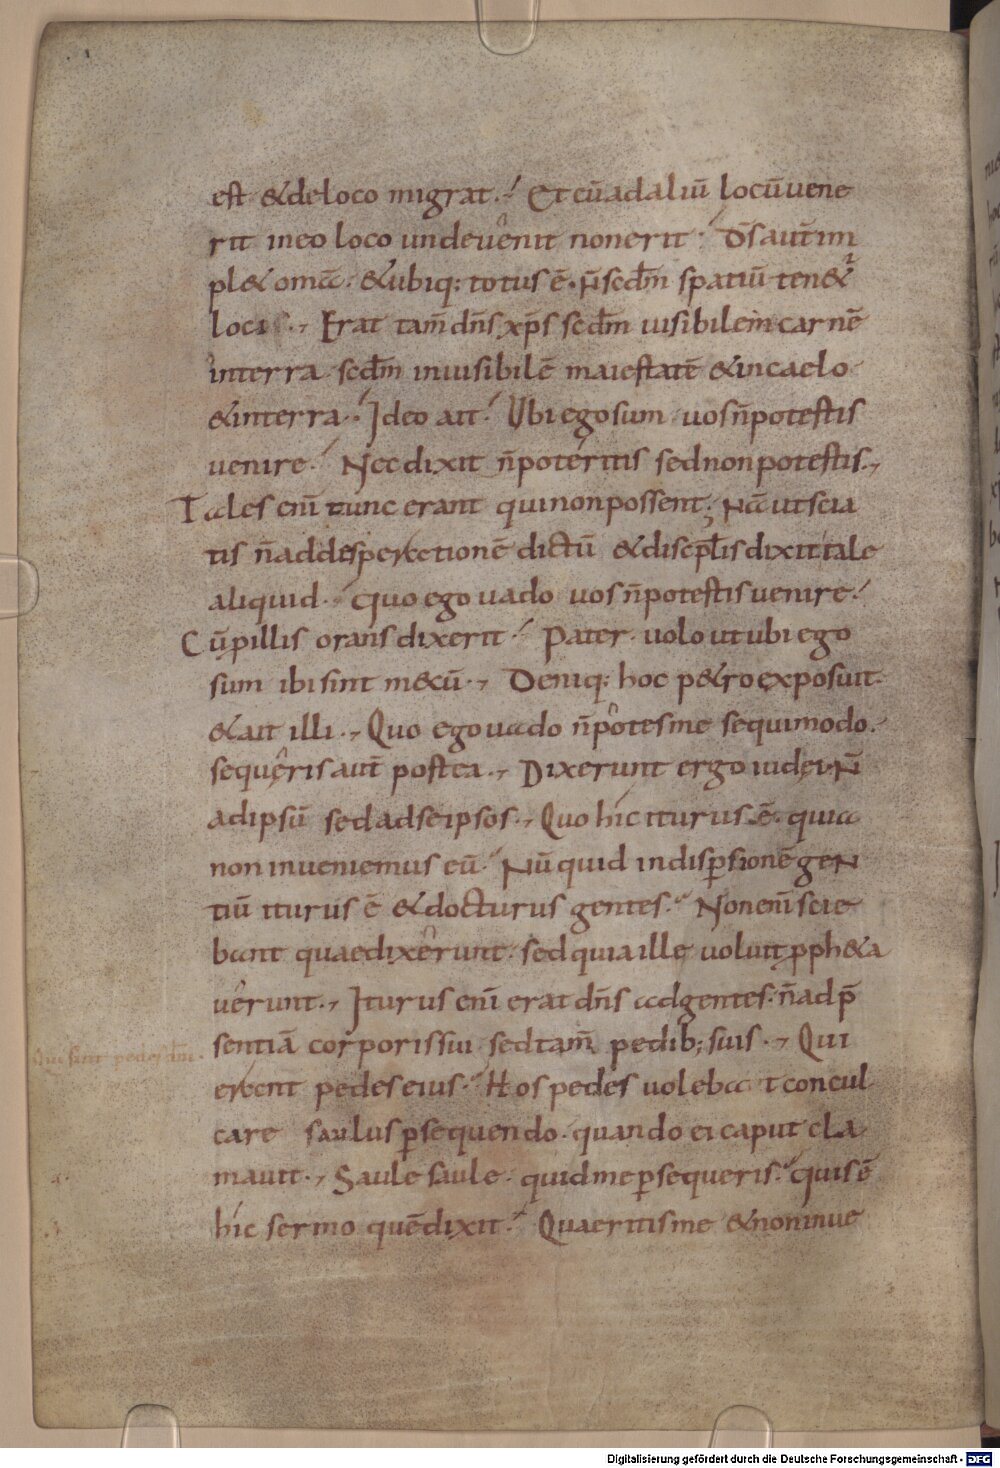 est &deloco migrat. Et cū adaliū locū uene
rit ineo loco undeuenit nonerit. Dr̄s aut̄ im
pl& omnia. &ubiq: totus ē. n̄ secdm̄ spatiū ten&
locis. Erat tam̄ dn̄s xp̄s secdm̄ uisibilem carnē
interra secdm̄ inuisibilē maiestatē &incaelo
&interra. Ideo ait. Ubi ego sum uos n̄ potestis
uenire. Nec dixit n̄ poteritis sed non potestis.
Tales enī tunc erant qui non possent; Nā ut scia
tis n̄ ad desperationē dictū &discipl̄is dixit tale
aliquid. quo ego uado uos n̄ potestis uenire.
Cū p illis orans dixerit. Pater uolo ut ubi ego
sum ibi sint mecū. Deniq: hoc p&ro exposuit.
&ait illi. Quo ego uado n̄ potes me sequi modo.
sequeris aut̄ postea. Dixerunt ergo iudei N̄
adipsū sed ad seipsos. Quo hic iturus ē. quia
non inueniemus eū. Nū quid indispersionē gen
tiū iturus ē &docturus gentes. Non enī scie
bant quae dixerunt. sed quia ille uoluit pph&a
uerunt. Iturus enī erat dn̄s ad gentes. n̄ ad p̄
sentiā corporis sui sed tam̄ pedib; suis. Qui
erant pedes eius. Hos pedes uolebat concul
care saulus persequendo. quando ei caput cla
mauit. Saule saule. quid me persequeris. quis ē
hic sermo quē dixit. Quaeritis me &non inue
Qui sint pedes dn̄i.
Digitalisierung gefördert durch die Deutsche Forschungsgemeinschaft - DFG